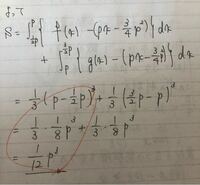 よって
S = ∫_{½p}^{p} { f(x) - (px - ¾p²) } dx
+ ∫_{p}^{3/2 p} { g(x) - (px - ¾p²) } dx
= ⅓ (p - ½p)³ + ⅓ (3/2 p - p)³
= ⅓ · ⅛ p³ + ⅓ · ⅛ p³
= 1/12 p³